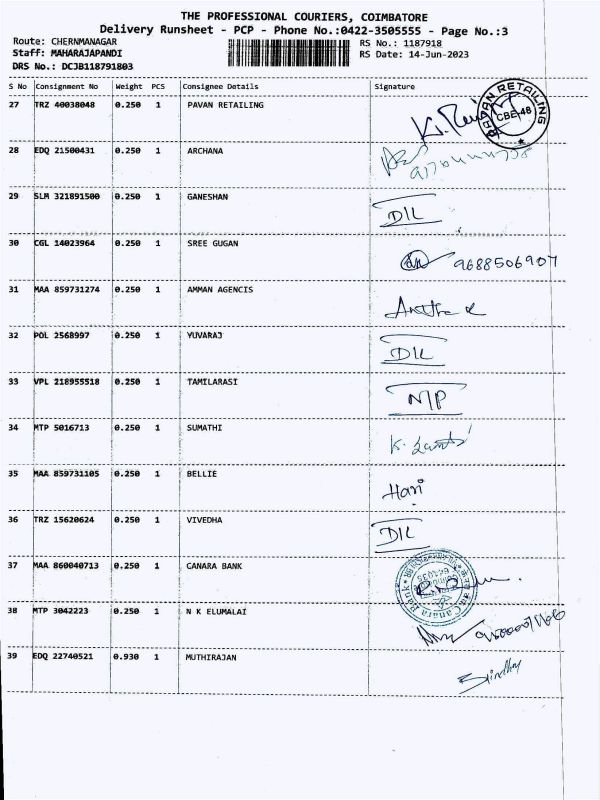 THE PROFESSIONAL COURIERS, COIMBATORE
Delivery Runsheet - PCP - Phone No.:0422-3505555 - Page No.:3
Route: CHERNMANAGAR RS No.: 1187918
Staff: MAHARAJAPANDI RS Date: 14-Jun-2023
DRS No.: DCJB118791803
S No Consignment No Weight PCS Consignee Details Signature
27 TRZ 40038048 0.250 1 PAVAN RETAILING
PAVAN RETAILING CBE-48
28 EDQ 21500431 0.250 1 ARCHANA
29 SLM 321891500 0.250 1 GANESHAN DIL
30 CGL 14023964 0.250 1 SREE GUGAN 9688506907
31 MAA 859731274 0.250 1 AMMAN AGENCIS
32 POL 2568997 0.250 1 YUVARAJ DIL
33 VPL 218955518 0.250 1 TAMILARASI N/P
34 MTP 5016713 0.250 1 SUMATHI
35 MAA 859731105 0.250 1 BELLIE Hari
36 TRZ 15620624 0.250 1 VIVEDHA DIL
37 MAA 860040713 0.250 1 CANARA BANK
Canara Bank
38 MTP 3042223 0.250 1 N K ELUMALAI
39 EDQ 22740521 0.930 1 MUTHIRAJAN Sindhu